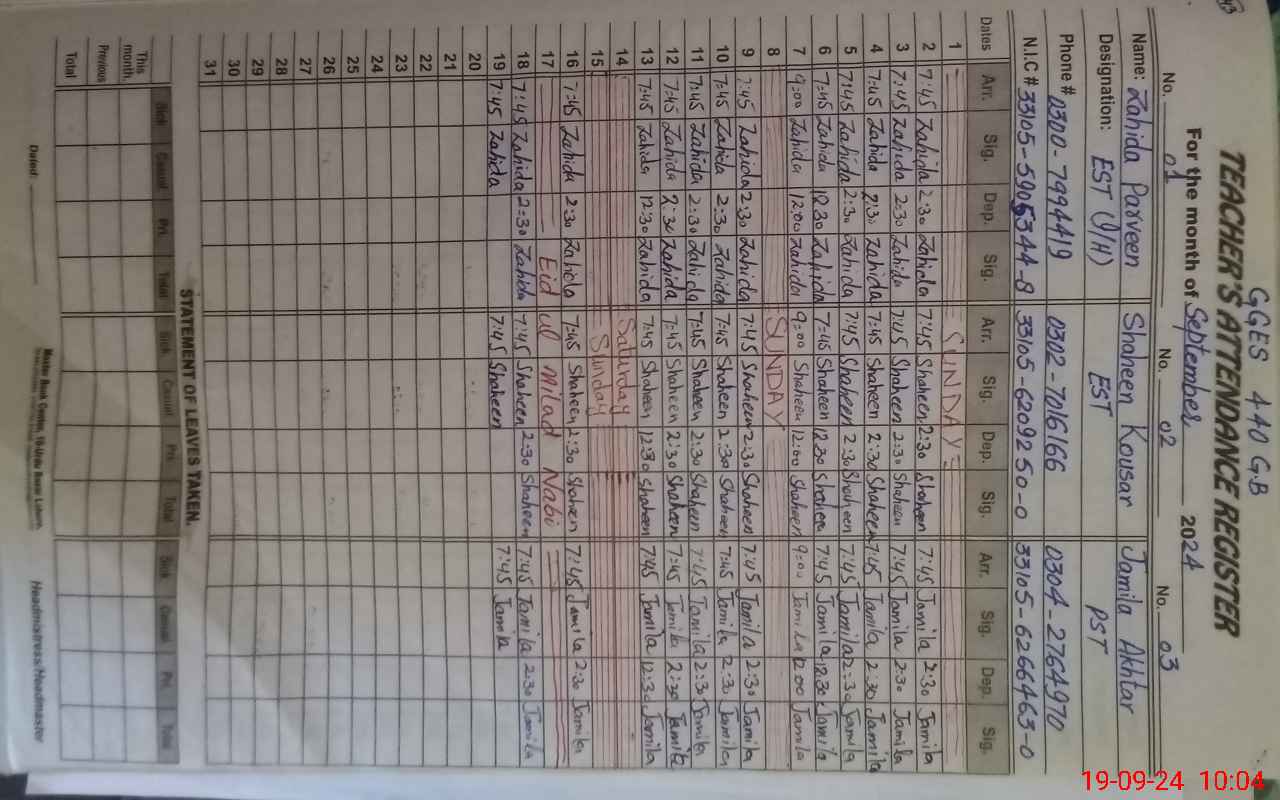 43
GGES 440 G.B
TEACHER'S ATTENDANCE REGISTER
For the month of September 2024
No. 01 No. 02 No. 03
Name: Zahida Parveen Shaheen Kousar Jamila Akhtar
Designation: EST (I/H) EST PST
Phone # 0300-7994419 0302-7016166 0304-2764970
N.I.C # 33105-5905344-8 33105-6209250-0 33105-6266463-0
Dates Arr. Sig. Dep. Sig. Arr. Sig. Dep. Sig. Arr. Sig. Dep. Sig.
1 SUNDAY
2 7:45 Zahida 2:30 Zahida 7:45 Shaheen 2:30 Shaheen 7:45 Jamila 2:30 Jamila
3 7:45 Zahida 2:30 Zahida 7:45 Shaheen 2:30 Shaheen 7:45 Jamila 2:30 Jamila
4 7:45 Zahida 2:30 Zahida 7:45 Shaheen 2:30 Shaheen 7:45 Jamila 2:30 Jamila
5 7:45 Zahida 2:30 Zahida 7:45 Shaheen 2:30 Shaheen 7:45 Jamila 2:30 Jamila
6 7:45 Zahida 12:30 Zahida 7:45 Shaheen 12:30 Shaheen 7:45 Jamila 12:30 Jamila
7 9:00 Zahida 12:00 Zahida 9:00 Shaheen 12:00 Shaheen 9:00 Jamila 12:00 Jamila
8 SUNDAY
9 7:45 Zahida 2:30 Zahida 7:45 Shaheen 2:30 Shaheen 7:45 Jamila 2:30 Jamila
10 7:45 Zahida 2:30 Zahida 7:45 Shaheen 2:30 Shaheen 7:45 Jamila 2:30 Jamila
11 7:45 Zahida 2:30 Zahida 7:45 Shaheen 2:30 Shaheen 7:45 Jamila 2:30 Jamila
12 7:45 Zahida 2:30 Zahida 7:45 Shaheen 2:30 Shaheen 7:45 Jamila 2:30 Jamila
13 7:45 Zahida 12:30 Zahida 7:45 Shaheen 12:30 Shaheen 7:45 Jamila 12:30 Jamila
14 Saturday
15 Sunday
16 7:45 Zahida 2:30 Zahida 7:45 Shaheen 2:30 Shaheen 7:45 Jamila 2:30 Jamila
17 Eid ul Milad Nabi
18 7:45 Zahida 2:30 Zahida 7:45 Shaheen 2:30 Shaheen 7:45 Jamila 2:30 Jamila
19 7:45 Zahida 7:45 Shaheen 7:45 Jamila
20
21
22
23
24
25
26
27
28
29
30
31
STATEMENT OF LEAVES TAKEN.
Sick Casual Pri. Total Sick Casual Pri. Total Sick Casual Pri. Total
This month
Previous
Total
Dated: Master Book Centre, 10-Urdu Bazar Lahore. Headmistress/Headmaster
19-09-24 10:04